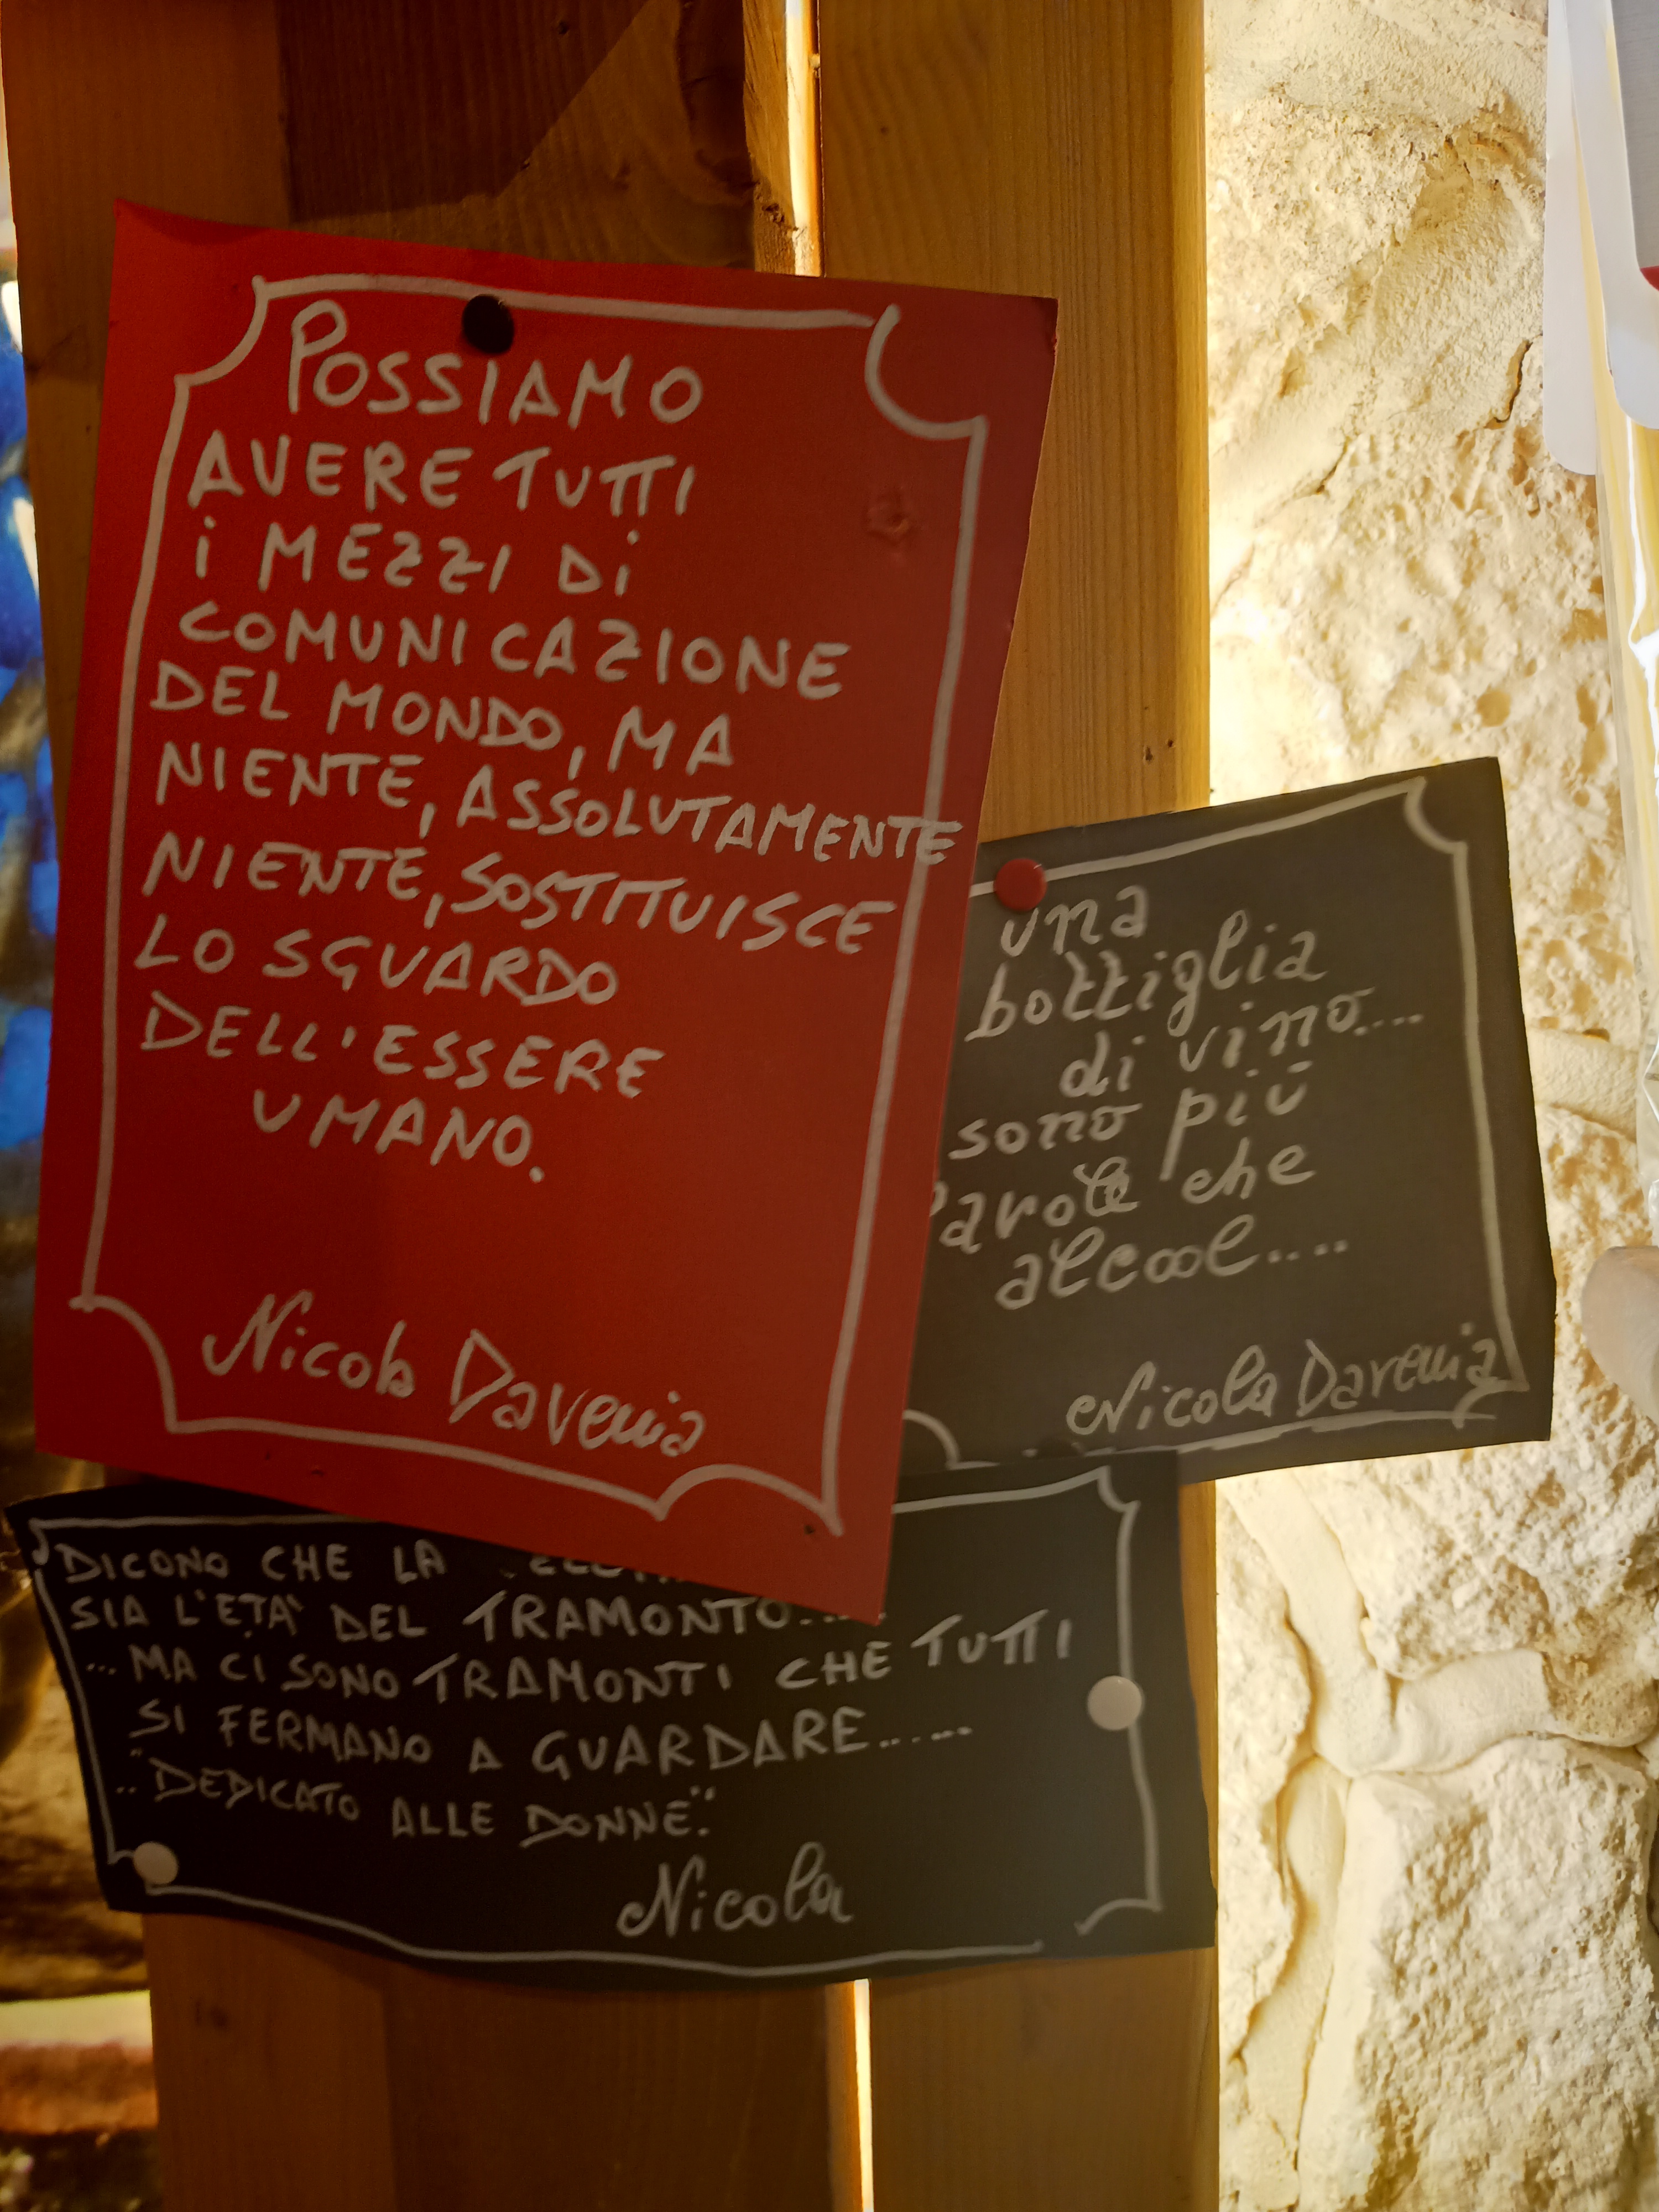 POSSIAMO
AVERE TUTTI
i MEZZI Di
COMUNICAZIONE
DEL MONDO, MA
NIENTE, ASSOLUTAMENTE
NIENTE, SOSTITUISCE
LO SGUARDO
DELL'ESSERE
UMANO.
Nicola Davenia
una
bottiglia
di vino....
sono più
Parole che
alcool....
Nicola Davenia
DICONO CHE LA
SIA L'ETA' DEL TRAMONTO.....
...MA CI SONO TRAMONTI CHE TUTTI
SI FERMANO A GUARDARE......
.."DEDICATO ALLE DONNE".
Nicola